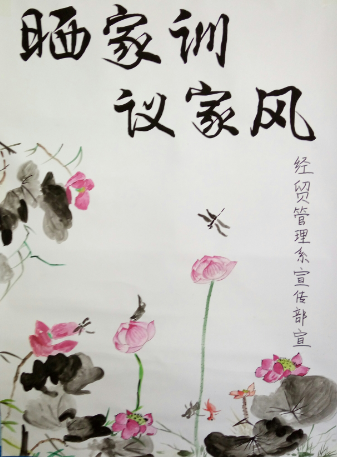 晒家训
议家风
经贸管理系宣传部宣